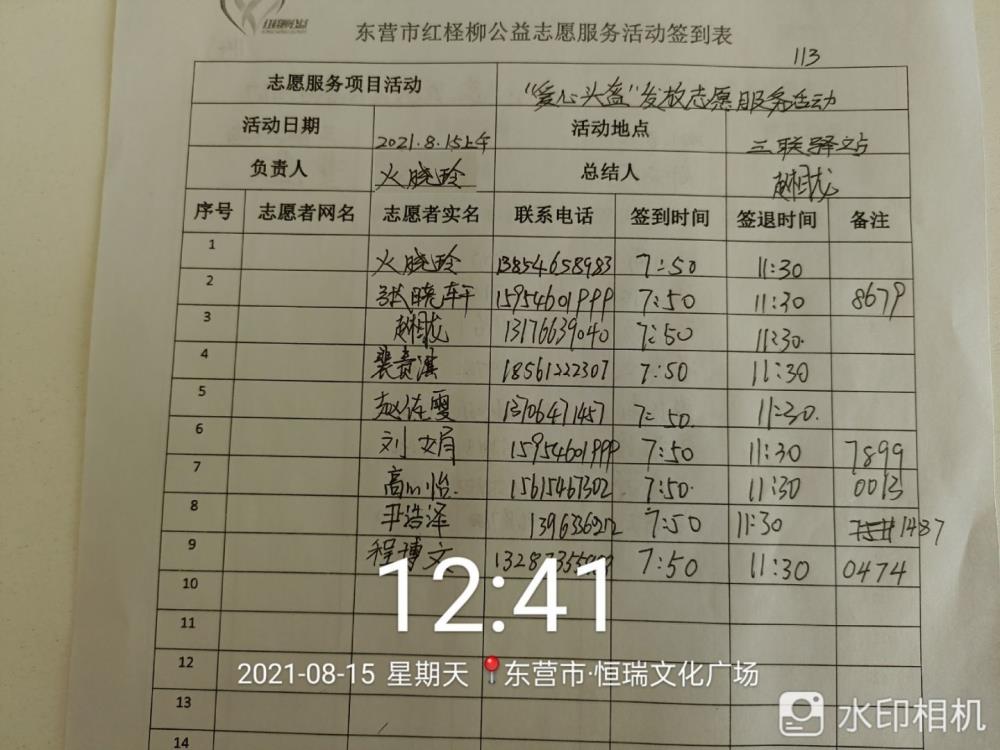 东营市红柽柳公益志愿服务活动签到表
113
志愿服务项目活动 "爱心头盔"发放志愿服务活动
活动日期 2021.8.15上午 活动地点 三联驿站
负责人 火晓玲 总结人 赵相龙
序号 志愿者网名 志愿者实名 联系电话 签到时间 签退时间 备注
1 火晓玲 13854658983 7:50 11:30
2 张晓轩 15954601999 7:50 11:30 8679
3 赵相龙 13176639040 7:50 11:30
4 裴贵滨 18561222307 7:50 11:30
5 赵佳雯 13706471457 7:50 11:30
6 刘文娟 15954601999 7:50 11:30 7899
7 高心怡 15615467302 7:50 11:30 0013
8 浩泽 7:50 11:30 1487
9 程博文 7:50 11:30 0474
10
11
12
13
14
12:41
2021-08-15 星期天 东营市·恒瑞文化广场
水印相机